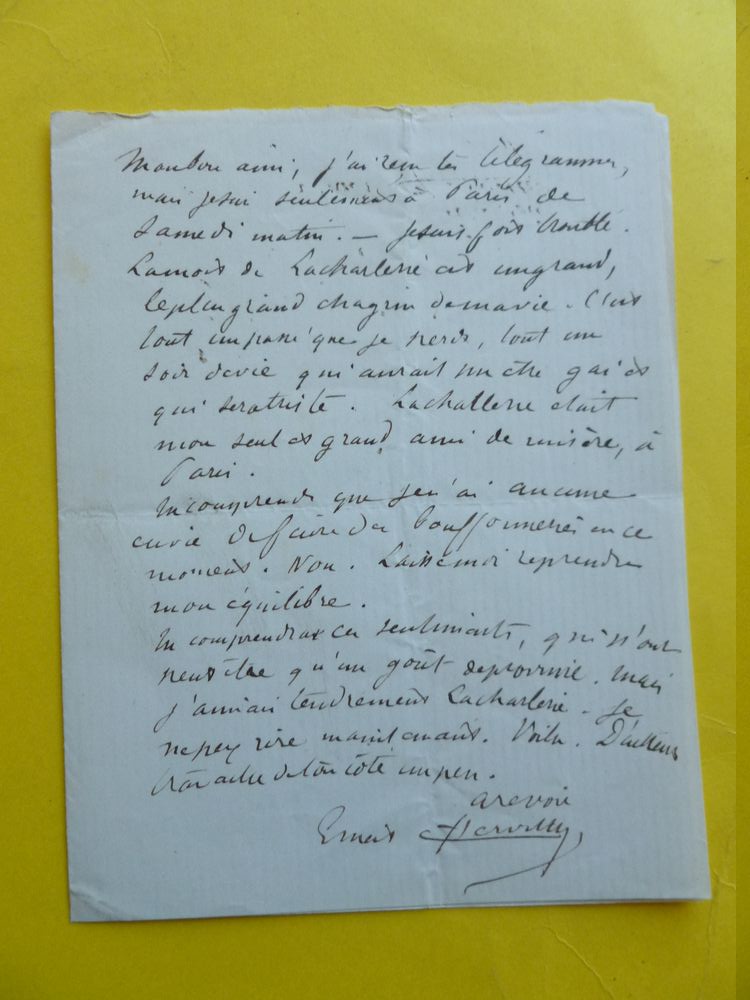 Mon bon ami, j'ai reçu tes télégrammes,
mais je suis seulement à Paris de
Samedi matin. — Je suis fort troublé.
La mort de Lacharlerie est un grand,
le plus grand chagrin de ma vie. C'est
tout un passé que je perds, tout un
soir de vie qui aurait pu être gai et
qui sera triste. Lacharlerie était
mon seul et grand ami de misère, à
Paris.
Tu comprends que je n'ai aucune
envie de faire des bouffonneries en ce
moment. Non. Laisse moi reprendre
mon équilibre.
Tu comprendras ces sentiments, qui n'ont
peut être qu'un goût de provinc. Mais
j'aimais tendrement Lacharlerie. Je
ne peux rire maintenant. Voilà. D'ailleurs
travaille de ton côté un peu.
a revoir
Ernest d'Hervilly